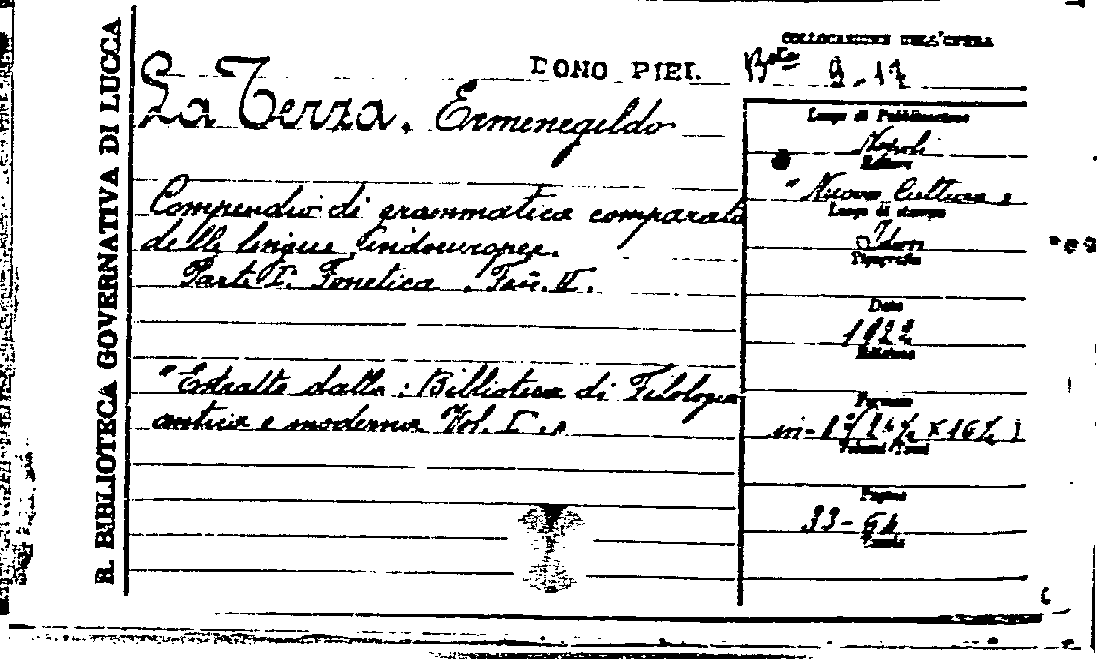 R. BIBLIOTECA GOVERNATIVA DI LUCCA
DONO PIEL
La Terza, Ermenegildo
Compendio di grammatica comparata
delle lingue indoeuropee.
Parte I. Fonetica.
"Estratto dalla: Biblioteca di Filologia
antica e moderna Vol. I."
COLLOCAZIONE DELL'OPERA
Luogo di Pubblicazione
Napoli
Editore
"Nuova Cultura"
Luogo di stampa
Idem
Tipografia
Data
1922
Edizione
Formato
Volumi Tomi
Pagine
33-64
Tavole